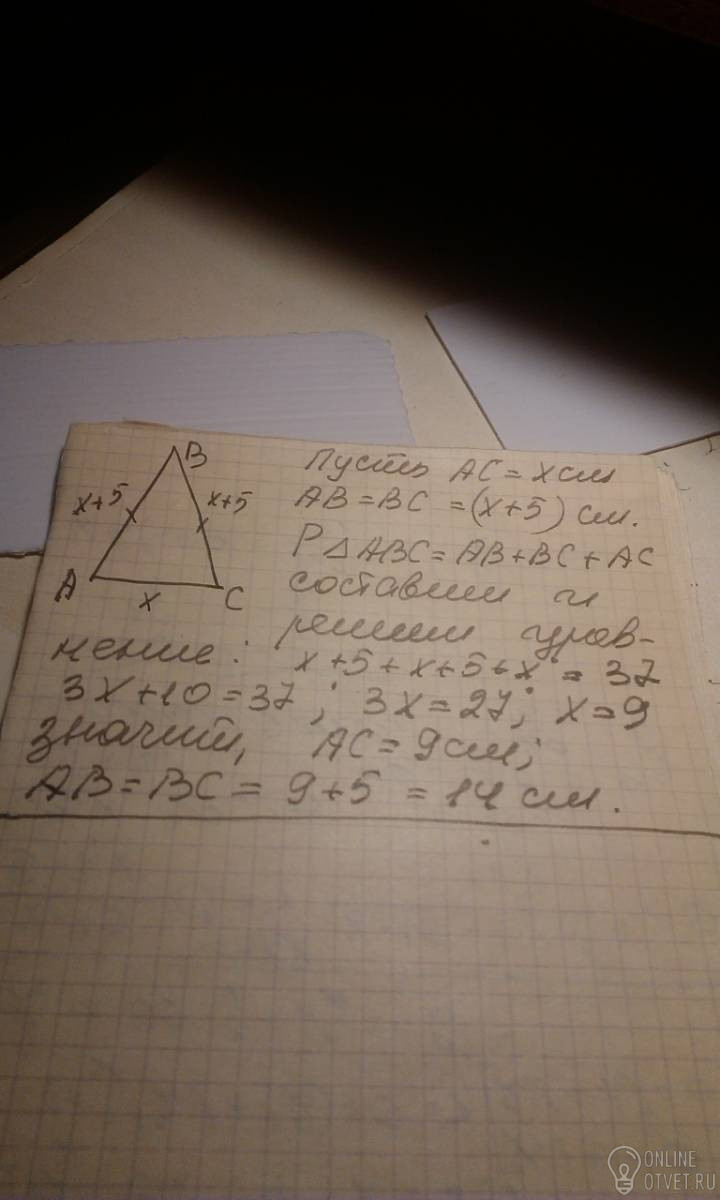 B
x+5
x+5
A
x
C
Пусть AC = x см
AB = BC = (x+5) см.
P△ABC = AB+BC+AC
составим и
решим урав-
нение: x+5+x+5+x = 37
3x+10=37; 3x=27; x=9
значит, AC = 9см;
AB = BC = 9+5 = 14 см.
ONLINE
OTVET.RU